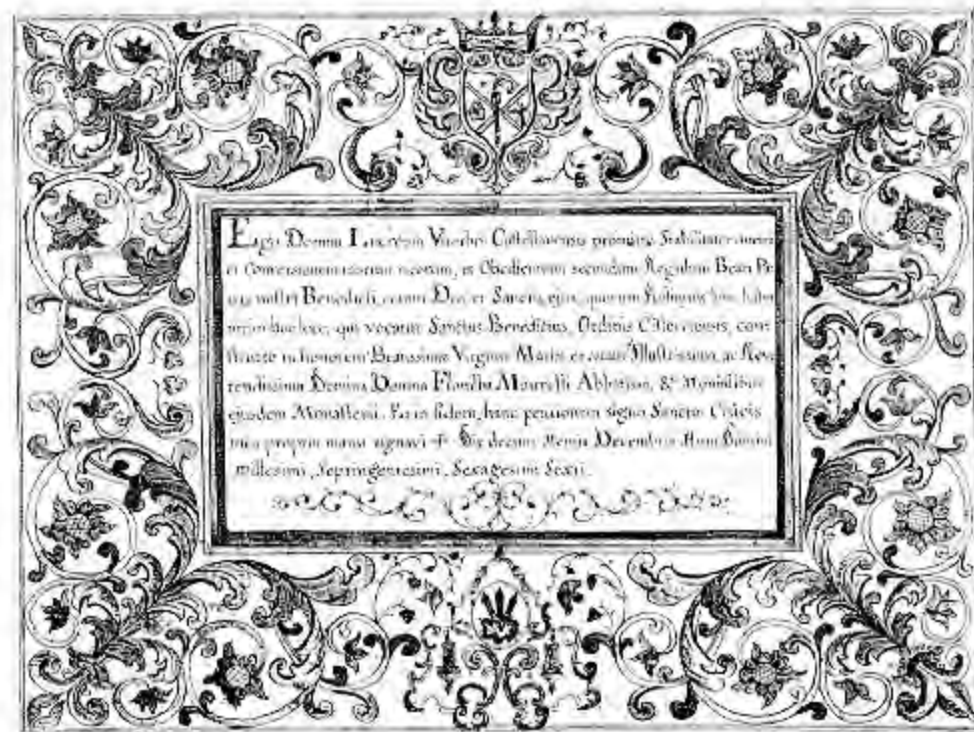 Ego Domna Lucretia Viterbo Castellanensis promitto Stabilitatem meam
et Conversionem morum meorum, et Obedientiam secundum Regulam Beati Pa
tris nostri Benedicti, coram Deo, et Sanctis ejus, quorum Reliquiæ hic habe
in hoc loco, qui vocatur Sanctus Benedictus, Ordinis Cisterciensis, cons
tructo in honorem Beatissimæ Virginis Mariæ in Illustrissima, ac Reve
rendissima Domina Domna Abbatissæ, & Monialibus
ejusdem Monasterii. Et in fidem, hanc petitionem signo Sanctæ Crucis
mea propria manu signavi ✝ Die decima Mensis Decembris Anni Domini
millesimi, Septingentesimi, Sexagesimi Sexti.